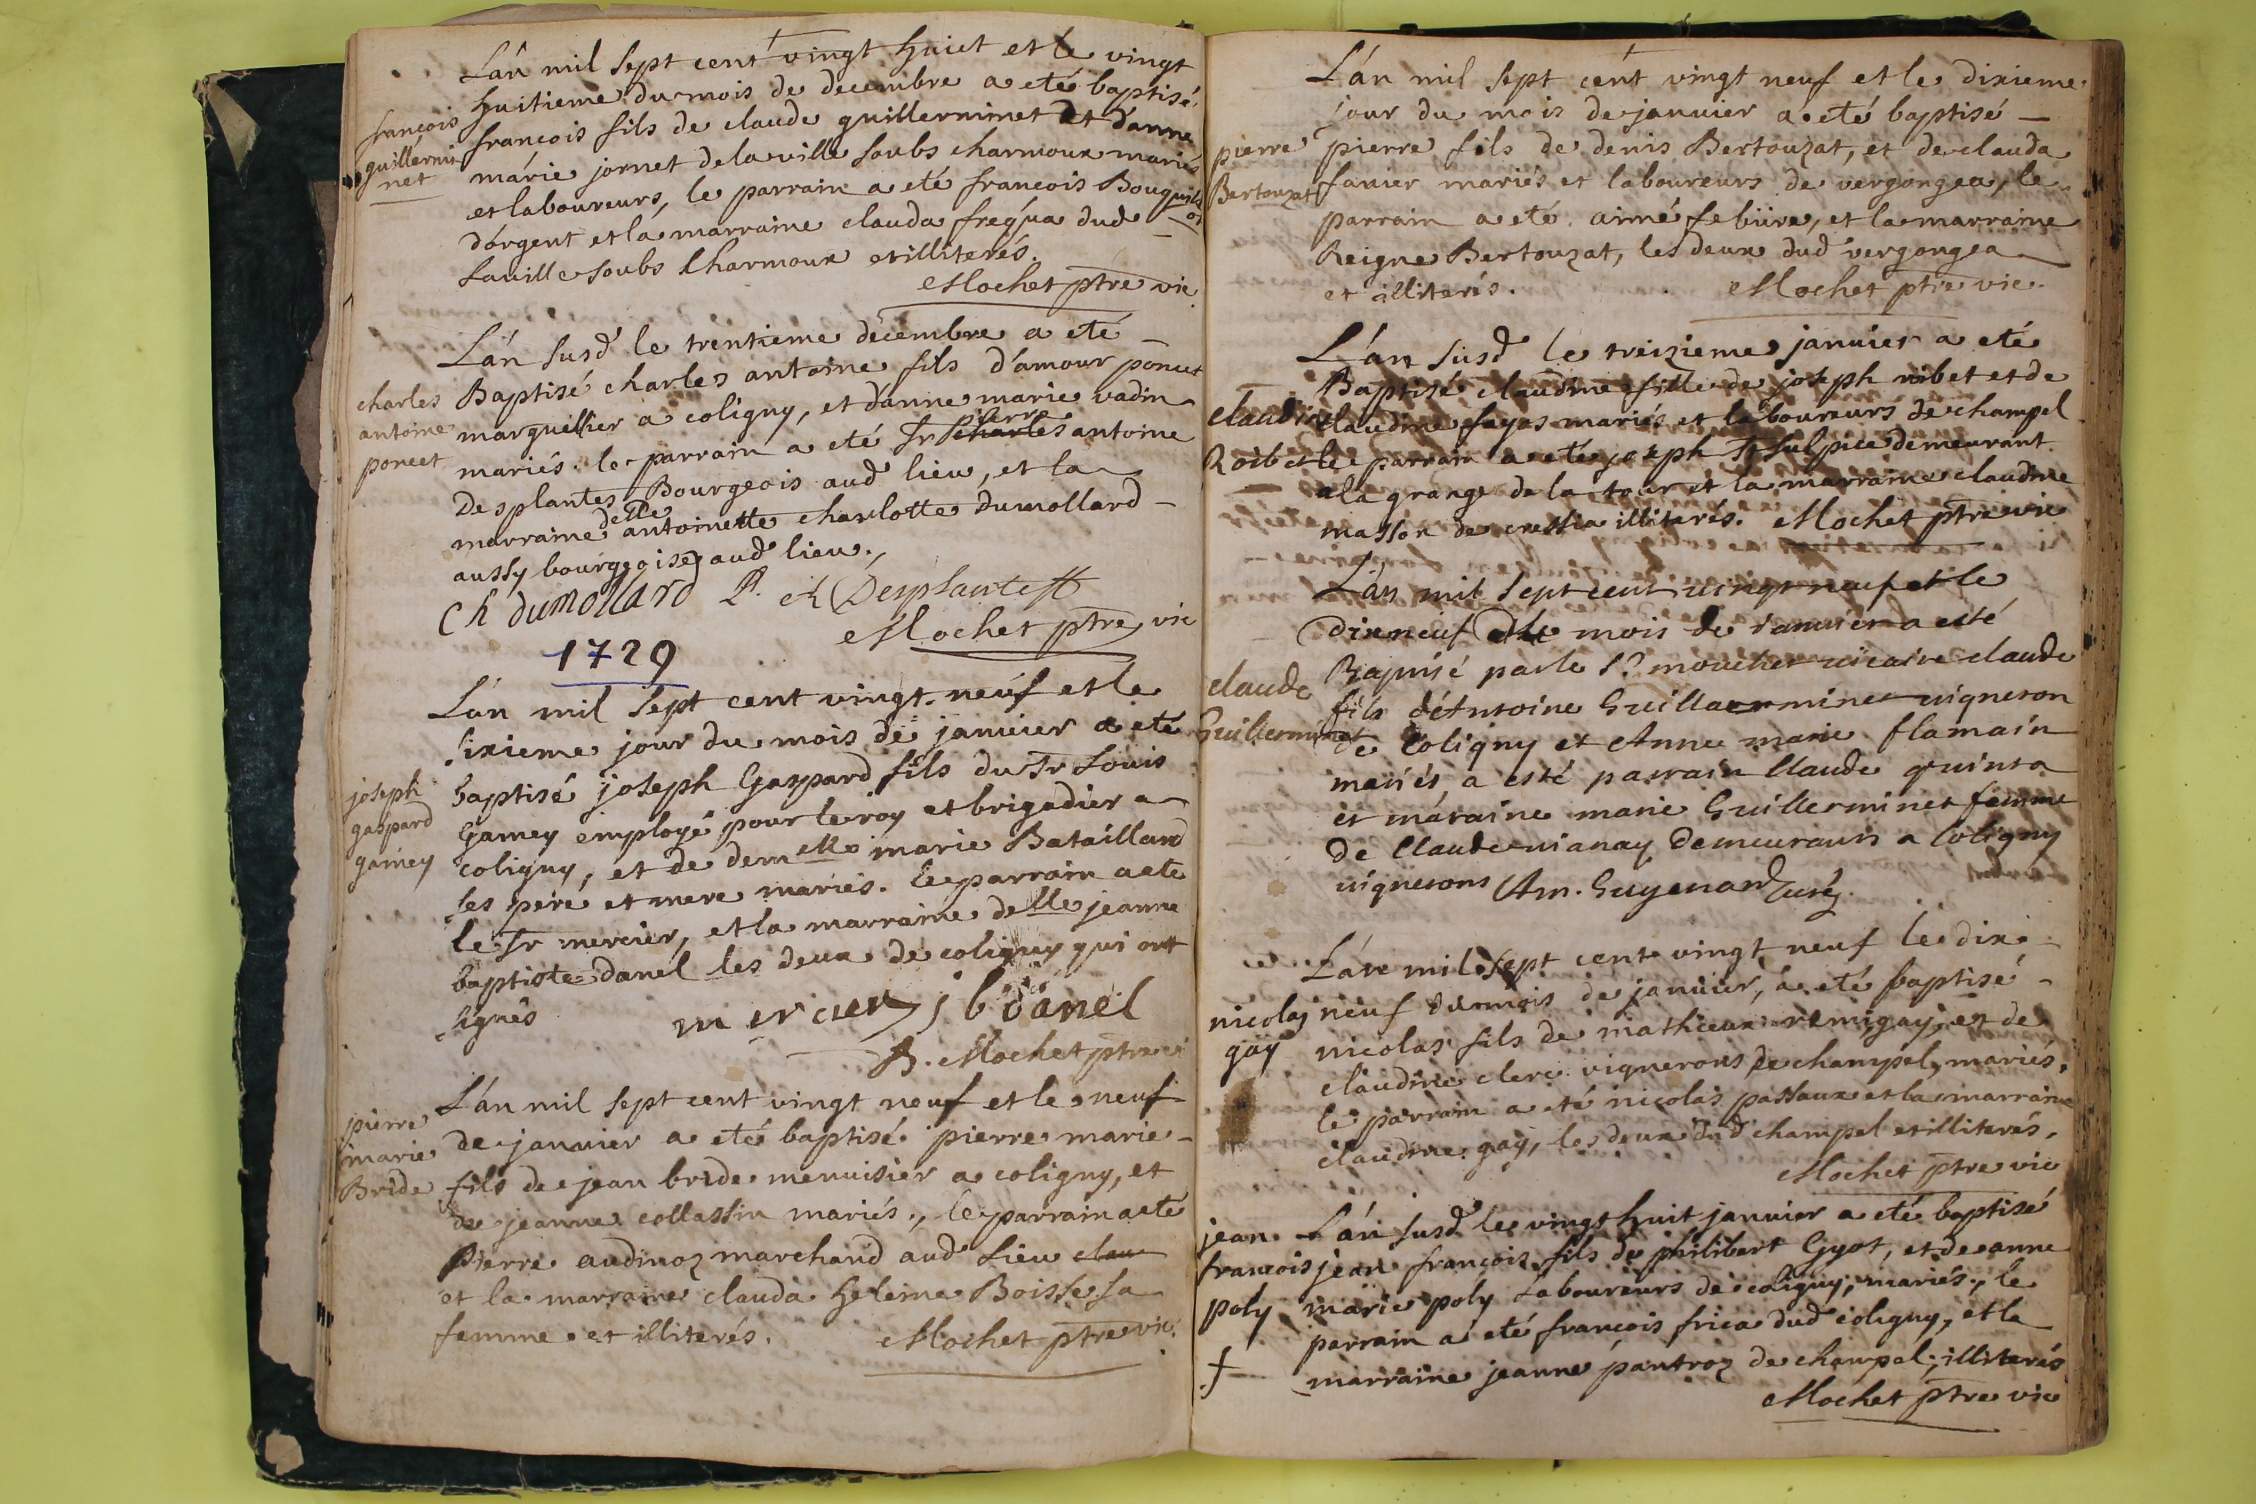 L'an mil sept cent vingt huict et le vingt
huitieme du mois de decembre a eté baptisé
françois
guillermi
net
francois fils de claude guillerminet et d'anne
márie jornet de la ville soubs charmoux mariés
et laboureurs, le parrain a eté francois Bouquis
d'argent et la marraine clauda fregúa dud
Laville soubs Charmoux et illiterés.
Mochet ptre vic
L'an susd le trentieme décembre a eté
charles
antoine
poncet
Baptisé charles antoine fils d'amour poncet
marguillier a coligny, et d'anne marie vadin
mariés. le parrain a eté Sr pierre charles antoine
Desplantes Bourgeois aud lieu, et la
marraine delle antoinette charlotte dumollard
aussy bourgeoise aud lieu.,
Ch dumollard P. ch Desplantess
Mochet ptre vic
1729
L'an mil sept cent vingt neuf et le
sixieme jour du mois de janvier a eté
joseph
gaspard
gamey
baptisé joseph Gaspard fils du Sr Louis
Gamey employé pour le roy et brigadier a
coligny, et de demelle marie Bataillard
ses pere et mere mariés. Le parrain a eté
le Sr mercier, et la marraine delle jeanne
baptiste danel les deux de coligny qui ont
signés
mercier j b danel
B. Mochet ptre vi
L'an mil sept cent vingt neuf et le neuf
pierre
marie
Bride
de janvier a eté baptisé pierre marie
fils de jean bride menuisier a coligny, et
de jeanne collassin mariés., le parrain a eté
Pierre audinoz marchand aud Lieu clau
et la marraine clauda heleine Boisse sa
femme et illiterés.
Mochet ptre vic
L'an mil sept cent vingt neuf et le dixieme
jour du mois de janvier a eté baptisé
pierre
Bertouzat
pierre fils de denis Bertouzat, et de clauda
fanier mariés et laboureurs de vergongea, le
parrain a eté aimé febüre, et la marraine
Reigne Bertouzat, les deux dud vergongea
et illiterés.
Mochet ptre vic.
L'an susd le treizieme janvier a eté
Baptisé claudine fille de joseph robet et de
claudine
Robet
claudine fayas mariés et laboureurs de champel
le parrain a eté joseph St sulpice demeurant
a la grange de la tour et la marraine claudine
masson de cressia illiterés. Mochet ptre vic
L'an mil sept cent vingt neuf et le
dixneuf du mois de ianvier a esté
claude
Guillerminet
Baptisé par le Sr mouchet uicaire claude
fils d'Antoine Guillaerminet uigneron
de Coligny et Anne marie flamain
mariés, a esté parrain Claude quinsa
et máraine marie Guillerminet femme
de Claude uianay demeurants a Coligny
uignerons Am. Guyenard curé
L'an mil sept cent vingt neuf le dix
nicolas
gay
neuf du mois de janvier, a eté baptisé
nicolas fils de mathieux remigay, et de
claudine clerc vignerons de champel mariés,
le parrain a eté nicolas passaux et la marraine
claudine gay, les deux dud champel et illiterés.
Mochet ptre vic
jean
francois
poly
L'an susd le vingt huit janvier a eté baptisé
jean françois fils de philibert Gyot, et de anne
marie poly Laboureurs de coligny, mariés, le
parrain a eté françois frica dud coligny, et la
marraine jeanne pantroz de champel, illiterés
Mochet ptre vic